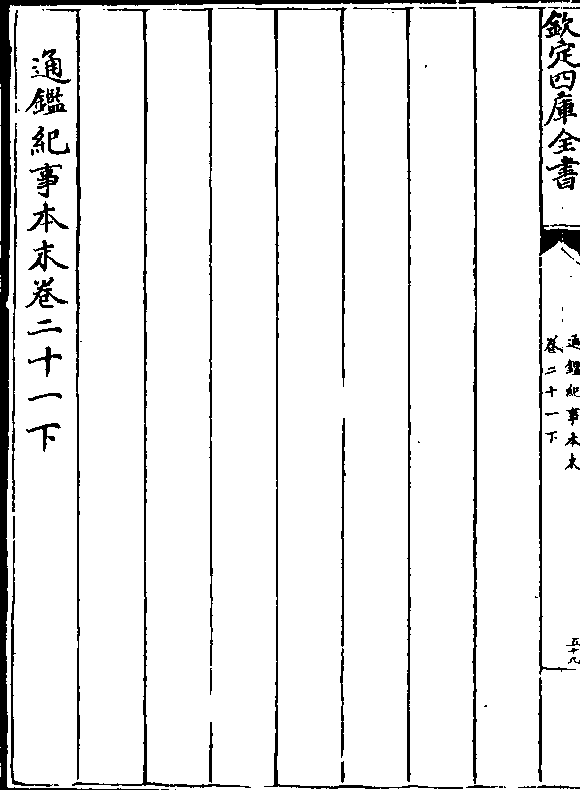 欽定四庫全書
通鑑紀事本末
卷二十一下
五十九
通鑑紀事本末卷二十一下